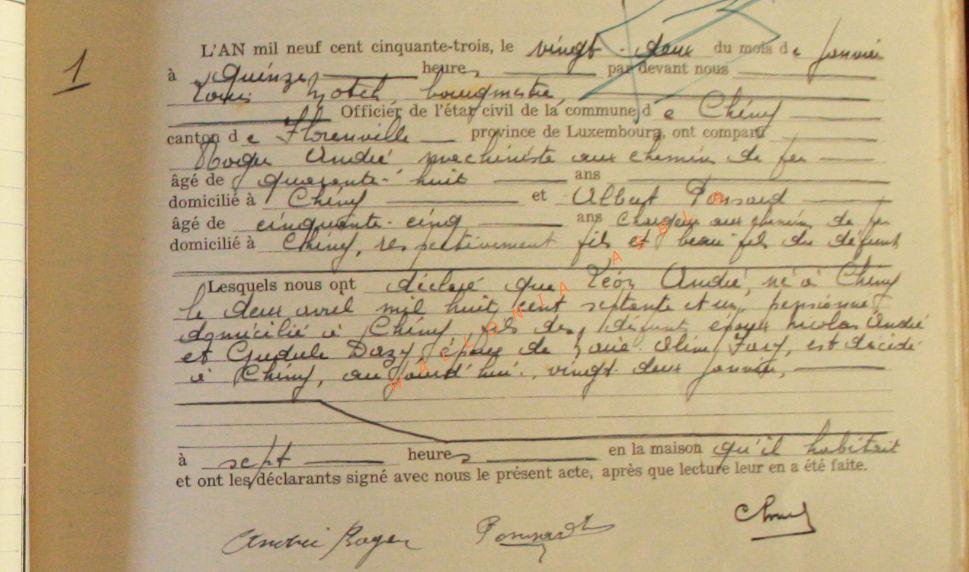 1
L'AN mil neuf cent cinquante-trois, le vingt-deux du mois de Janvier
à quinze heures par devant nous
Louis bourgmestre
Officier de l'état civil de la commune de Chiny
canton de Florenville province de Luxembourg, ont comparu
Roger André machiniste aux chemins de fer
âgé de quarante-huit ans
domicilié à Chiny et Albert Ponsard
âgé de cinquante-cinq ans chargeur aux chemins de fer
domicilié à Chiny, respectivement fils et beau-fils du défunt
Lesquels nous ont déclaré que Léon André, né à Chiny
le deux avril mil huit cent septante et un, pensionné
domicilié à Chiny, fils des défunts époux Nicolas André
et Gudule Dazy, époux de Marie Aline, est décédé
à Chiny, aujourd'hui, vingt deux janvier,
à sept heures en la maison qu'il habitait
et ont les déclarants signé avec nous le présent acte, après que lecture leur en a été faite.
André Roger Ponsard